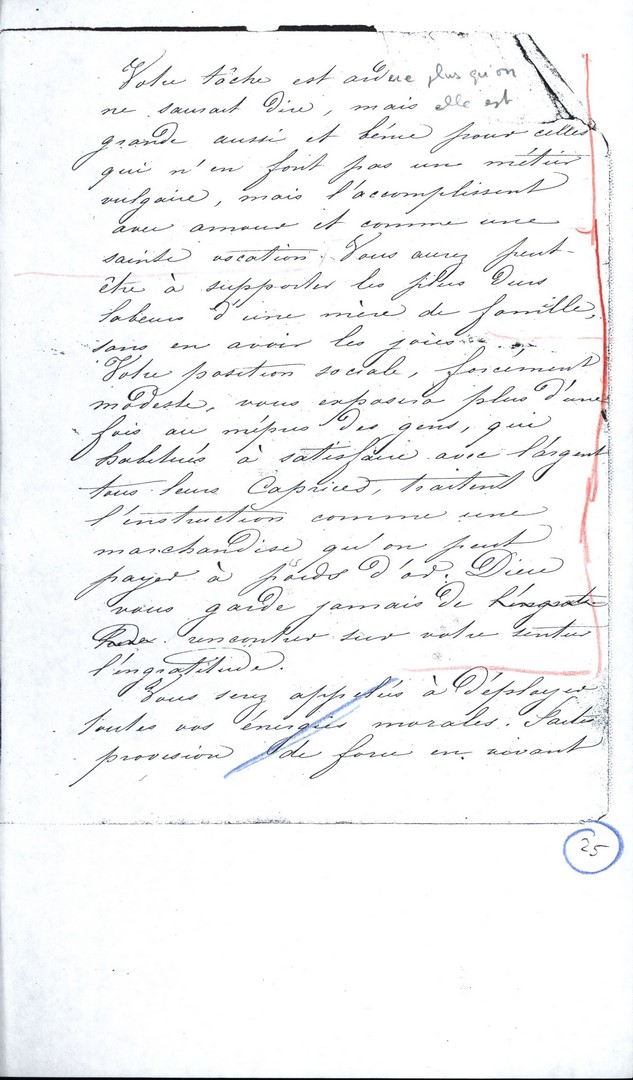 Votre tâche est ardue plus qu'on
ne saurait dire, mais elle est
grande aussi et bénie pour celles
qui n'en font pas un métier
vulgaire, mais l'accomplissent
avec amour et comme une
sainte vocation. Vous aurez peut-
être à supporter les plus durs
labeurs d'une mère de famille,
sans en avoir les joies.
Votre position sociale, forcément
modeste, vous exposera plus d'une
fois au mépris des gens, qui
habitués à satisfaire avec l'argent
tous leurs caprices, traitent
l'instruction comme une
marchandise qu'on peut
payer à poids d'or. Dieu
vous garde jamais de
rencontrer sur votre sentier
l'ingratitude.
Vous serez appelés à déployer
toutes vos énergies morales. Faites
provision de force en vivant
25